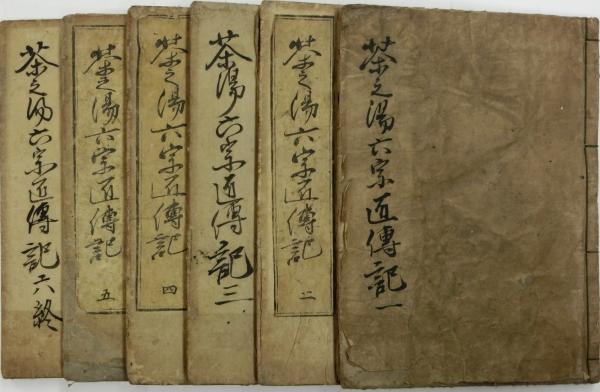 茶之湯六宗匠傳記一
茶之湯六宗匠傳記
二
茶湯六宗匠傳記三
茶之湯六宗匠傳記
四
茶之湯六宗匠傳記
五
茶之湯六宗匠傳記六終